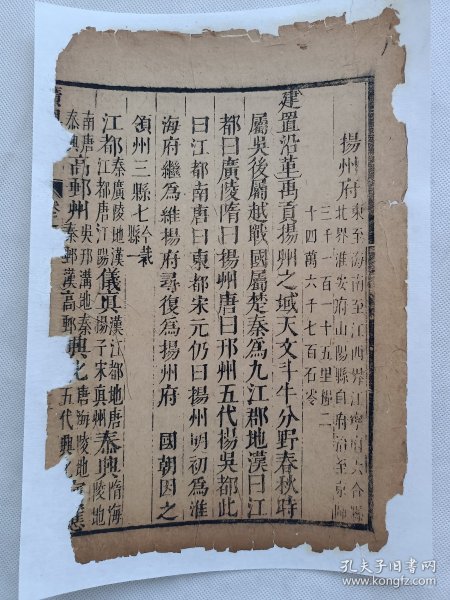 揚州府東至海南至江西界江寧府六合縣
北界淮安府山陽縣自府治至京師
三千一百一十五里糧二
十四萬六千七百石零
建置沿革禹貢揚州之域天文斗牛分野春秋時
屬吳後屬越戰國屬楚秦為九江郡地漢曰江
都曰廣陵隋曰揚州唐曰邗州五代楊吳都此
曰江都南唐曰東都宋元仍曰揚州明初為淮
海府繼為維揚府尋復為揚州府 國朝因之
領州三縣七
江都秦廣陵地漢江都唐江陽儀真漢江都地唐揚子宋真州泰興隋海陵地
南唐泰興高郵州吳邗溝地秦秦郵漢高郵興化唐海陵地五代興化寶應
孔夫子旧书网
www.kongfz.com